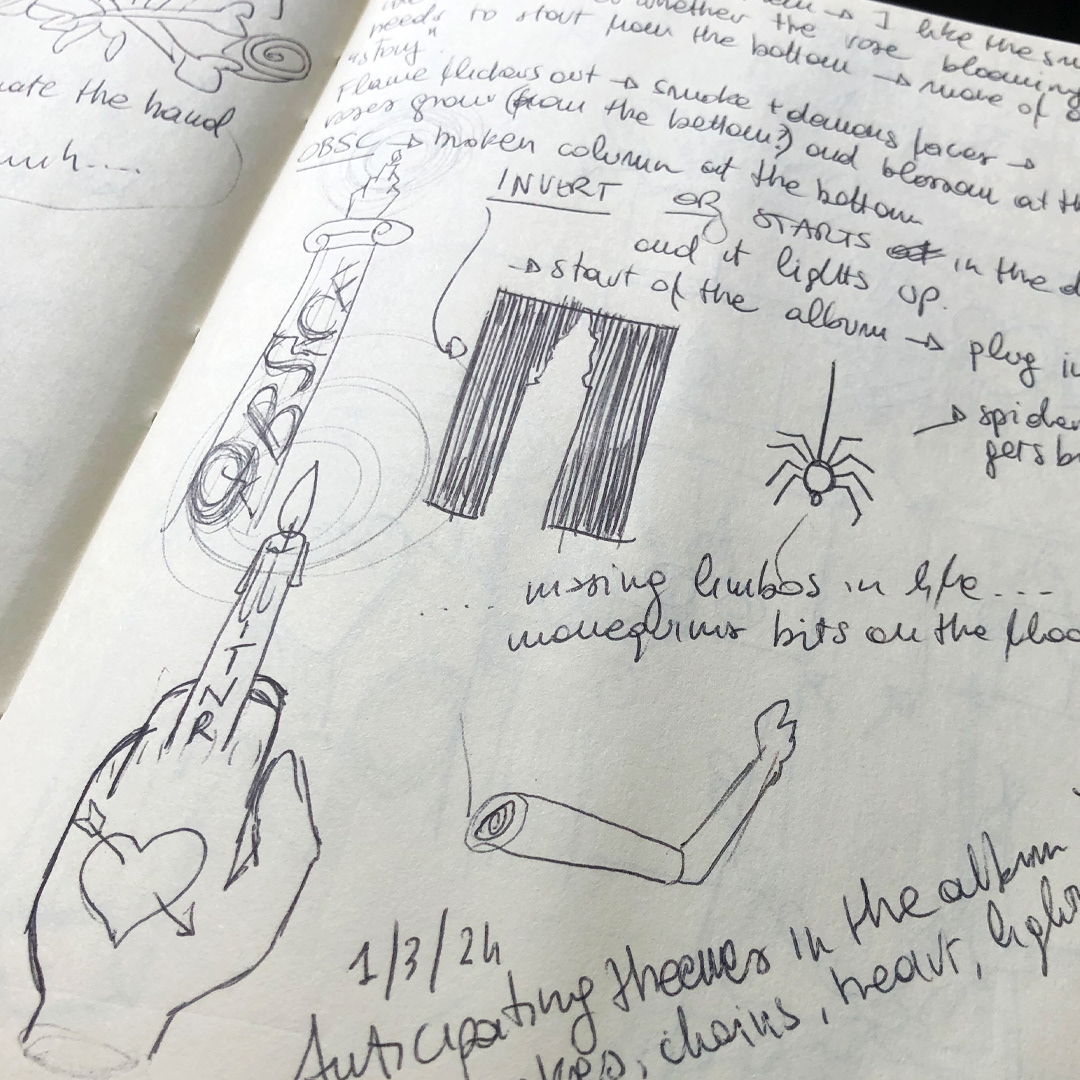 ate the hand
I like the
whether the rose blooming
needs to start from the bottom → more of
"story"
Flame flickers out → smoke + demons faces →
roses grow (from the bottom?) and blossom at
OBSC → broken column at the bottom
INVERT OR STARTS in the
and it lights up.
→ start of the album → plug
→ spider
gets
OBSICK
missing limbos in life...
manequins bits on the
RNIT
1/3/24
Anticipating theemes in the album
chains, heart,